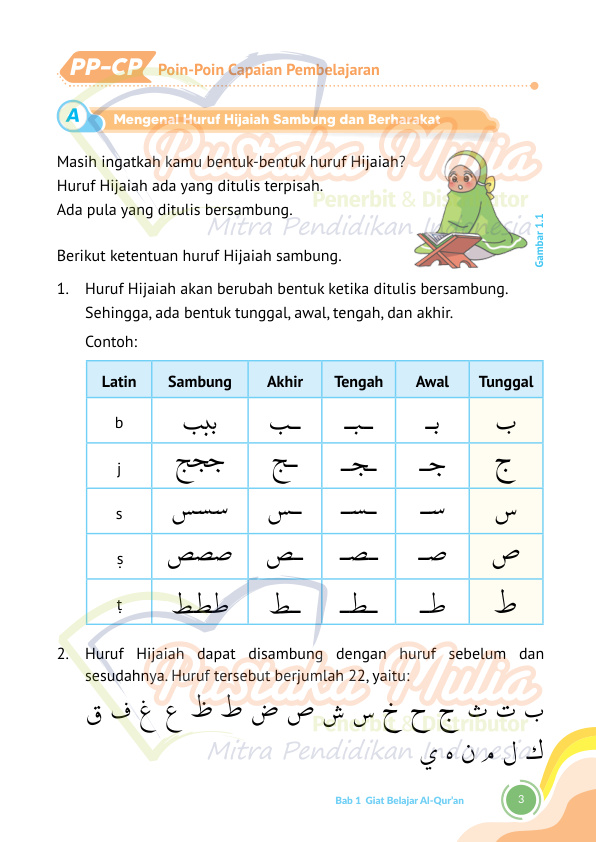 PP-CP Poin-Poin Capaian Pembelajaran
A Mengenal Huruf Hijaiah Sambung dan Berharakat
Masih ingatkah kamu bentuk-bentuk huruf Hijaiah?
Huruf Hijaiah ada yang ditulis terpisah.
Ada pula yang ditulis bersambung.
Gambar 1.1
Pustaka Mulia
Penerbit & Distributor
Mitra Pendidikan Indonesia
Berikut ketentuan huruf Hijaiah sambung.
1. Huruf Hijaiah akan berubah bentuk ketika ditulis bersambung.
Sehingga, ada bentuk tunggal, awal, tengah, dan akhir.
Contoh:
Latin Sambung Akhir Tengah Awal Tunggal
b ببب ـب ـبـ بـ ب
j ججج ـج ـجـ جـ ج
s سسس ـس ـسـ سـ س
ṣ صصص ـص ـصـ صـ ص
ṭ ططط ـط ـطـ طـ ط
2. Huruf Hijaiah dapat disambung dengan huruf sebelum dan
sesudahnya. Huruf tersebut berjumlah 22, yaitu:
ب ت ث ج ح خ س ش ص ض ط ظ ع غ ف ق
ك ل م ن ه ي
Pustaka Mulia
Penerbit & Distributor
Mitra Pendidikan Indonesia
Bab 1 Giat Belajar Al-Qur'an 3